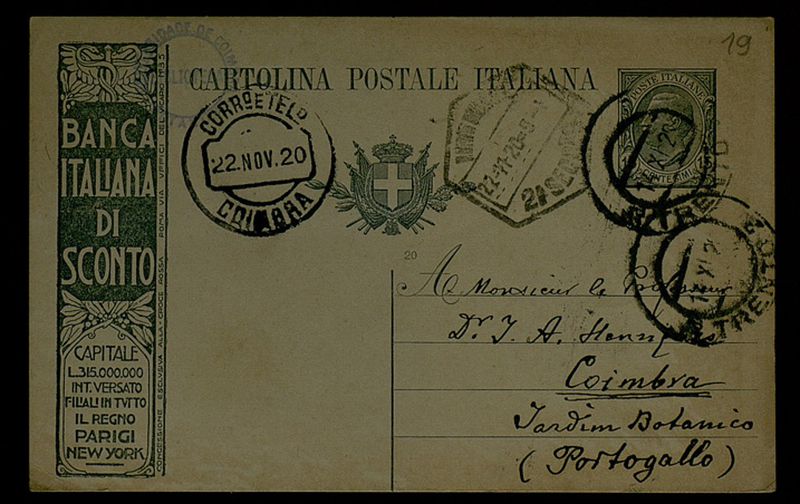 19
CARTOLINA POSTALE ITALIANA
BANCA
ITALIANA
DI
SCONTO
CAPITALE
L.315.000.000
INT. VERSATO
FILIALI IN TVTTO
IL REGNO
PARIGI
NEW YORK
CONCESSIONE ESCLUSIVA ALLA CROCE ROSSA ROMA VIA UFFICI DEL VICARIO
CORRO E TELO
22.NOV.20
COIMBRA
POSTE ITALIANE
15 CENTESIMI 15
TRENTO
TRENTO
20
A Monsieur le Professeur
Dr. J. A. Henriques
Coimbra
Jardim Botanico
(Portogallo)